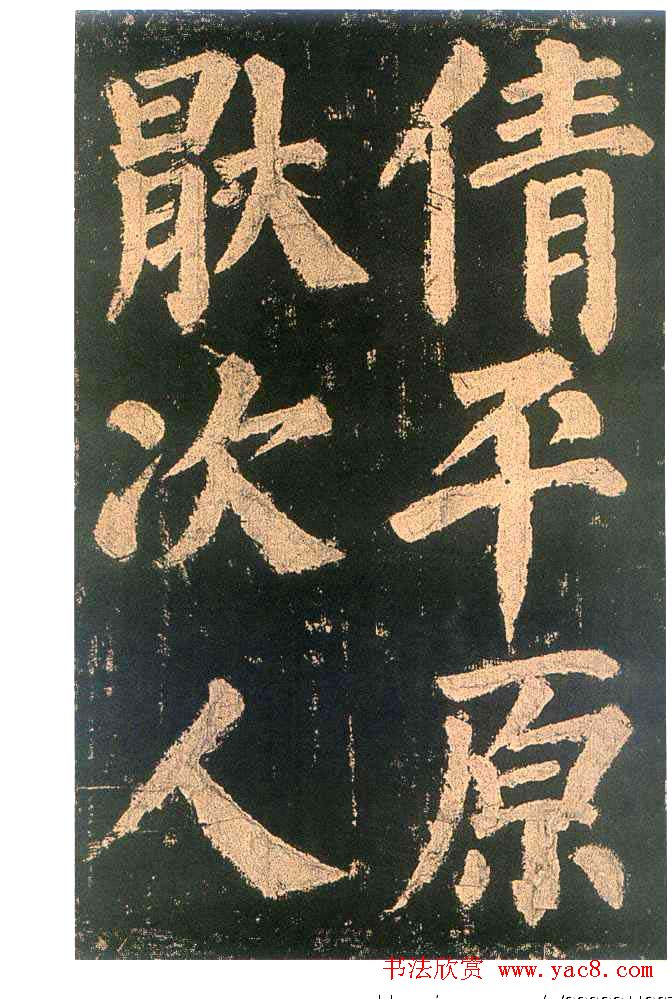 倩平原
猒次人
书法欣赏 www.yac8.com